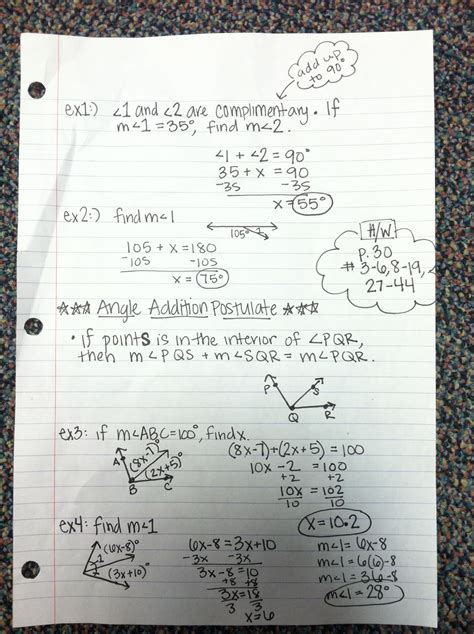 add up
to 90°
ex1:) ∠1 and ∠2 are complimentary. If
m∠1 = 35°, find m∠2.
∠1 + ∠2 = 90°
35 + x = 90
-35 -35
x = 55°
ex2:) find m∠1
105° 1
105 + x = 180
-105 -105
x = 75°
H/W
p. 30
# 3-6, 8-19,
27-44
☆☆☆ Angle Addition Postulate ☆☆☆
• If point S is in the interior of ∠PQR,
then m∠PQS + m∠SQR = m∠PQR.
P S
Q R
ex3: if m∠ABC=100°, find x.
A (8x-7)°
(2x+5)°
B C
(8x-7)+(2x+5) = 100
10x -2 = 100
+2 +2
10x = 102
10 10
x = 10.2
ex4: find m∠1
(6x-8)°
1
(3x+10)°
6x-8 = 3x+10
-3x -3x
3x-8 = 10
+8 +8
3x = 18
3 3
x = 6
m∠1 = 6x-8
m∠1 = 6(6)-8
m∠1 = 36-8
m∠1 = 28°